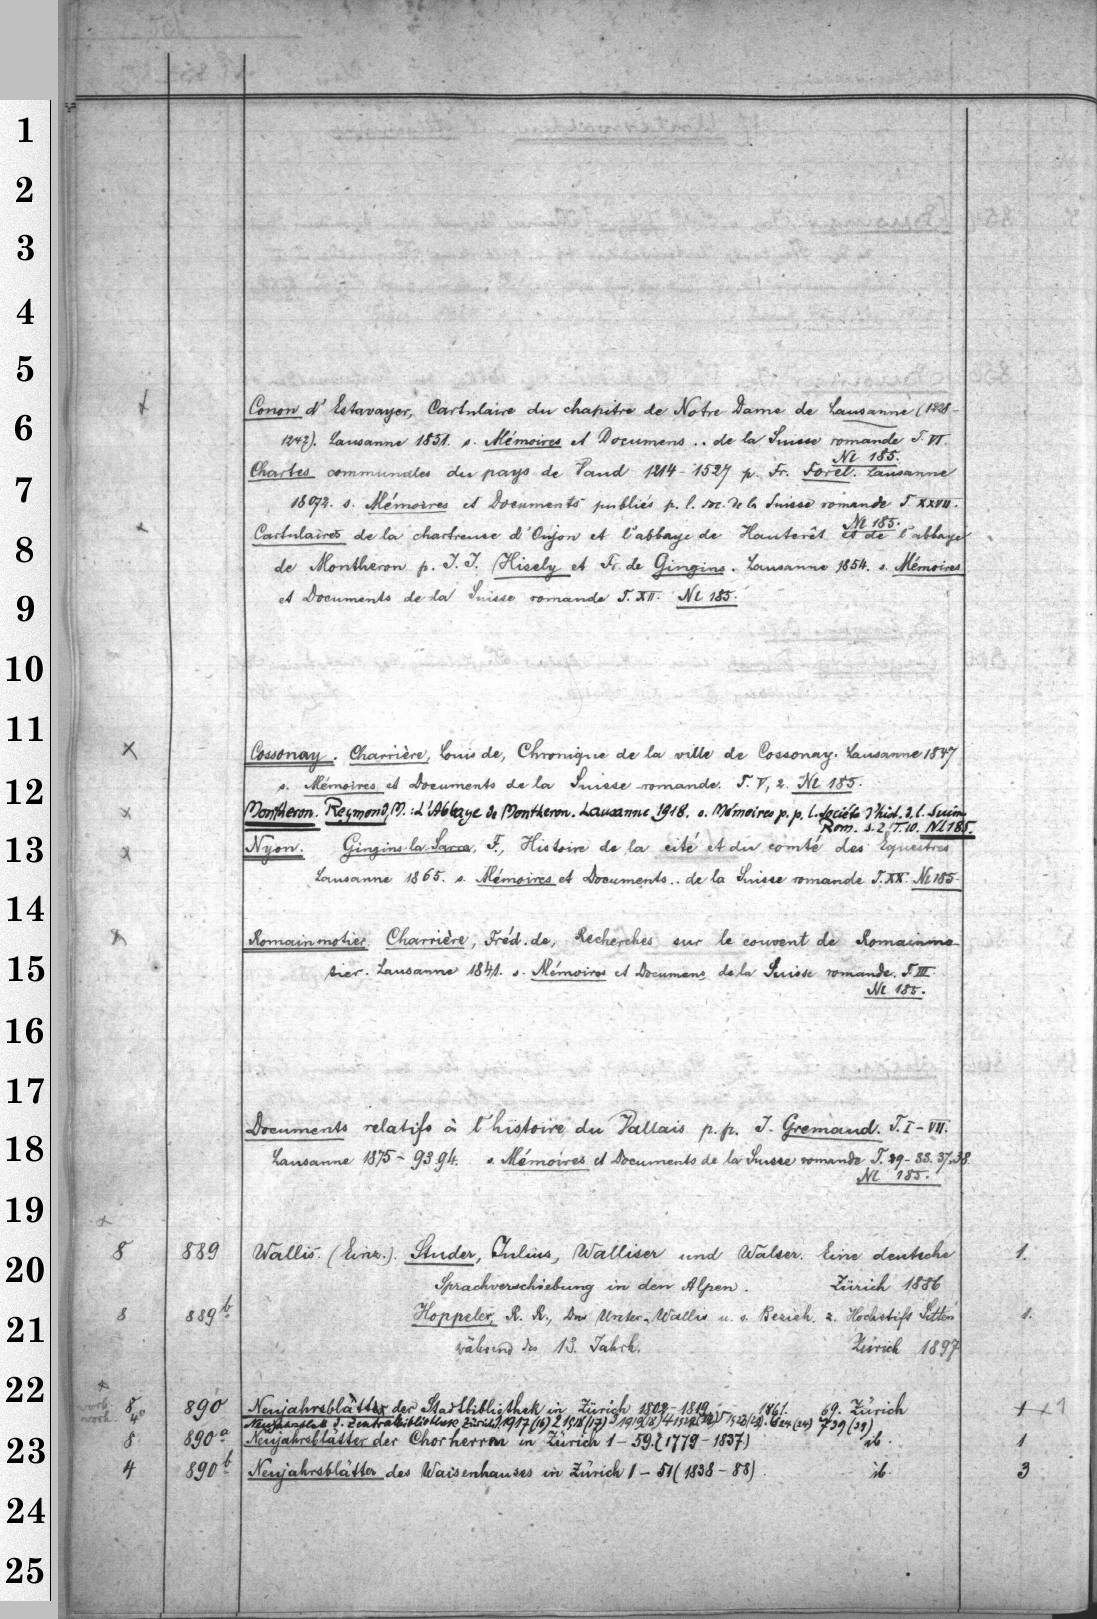 1
2
3
4
5
6
7
8
9
10
11
12
13
14
15
16
17
18
19
20
21
22
23
24
25
Conon d' Estavayer, Cartulaire du chapitre de Notre Dame de Lausanne (1228-
1242). Lausanne 1851. s. Mémoires et Documens .. de la Suisse romande T. VI.
Nl 185.
Chartes communales du pays de Vaud 1214-1527 p. Fr. Forel. Lausanne
1872. s. Mémoires et Documents publiés p. l. soc. de la Suisse romande T. XXVII.
Nl 185.
Cartulaires de la chartreuse d'Oujon et l'abbaye de Hauterêt et de l'abbaye
de Montheron p. J. J. Hisely et Fr. de Gingins. Lausanne 1854. s. Mémoires
et Documents de la Suisse romande T. XII. Nl 185.
x Cossonay. Charrière, Louis de, Chronique de la ville de Cossonay. Lausanne 1847
s. Mémoires et Documents de la Suisse romande. T. V, 2. Nl 185.
x Montheron. Reymond, M.: L'Abbaye de Montheron. Lausanne 1918. s. Mémoires p. p. l. Société d'hist. d. l. Suisse
Rom. s. 2. T. 10. Nl 185.
x Nyon. Gingins-la-Sarra, F., Histoire de la cité et du comté des Equestres
Lausanne 1865. s. Mémoires et Documents .. de la Suisse romande T. XX. Nl 185.
x Romainmotier. Charrière, Fréd. de, Recherches sur le couvent de Romainmo-
tier. Lausanne 1841. s. Mémoires et Documens de la Suisse romande. T. III.
Nl 185.
Documents relatifs à l'histoire du Vallais p. p. J. Gremaud. T. I-VII.
Lausanne 1875-93 94. s. Mémoires et Documents de la Suisse romande T. 29-33. 37. 38.
Nl 185.
8 889 Wallis. (Einz.). Studer, Julius, Walliser und Walser. Eine deutsche 1.
Sprachverschiebung in den Alpen. Zürich 1886
8 889b Hoppeler, R. R., Das Unter-Wallis u. s. Bezieh. z. Hochstift Sitten 1.
während des 13. Jahrh. Zürich 1897
8 4° 890 Neujahrsblätter der Stadtbibliothek in Zürich 1802-1819 1861. 69. Zürich 1
Neujahrsblatt d. Zentralbibliothek Zürich 1 1917 (16) 2 1918 (17) 3 1919 (18)
8 890a Neujahrsblätter der Chorherrn in Zürich 1-59. (1779-1837) ib. 1
4 890b Neujahrsblätter des Waisenhauses in Zürich 1-51 (1838-88). ib. 3